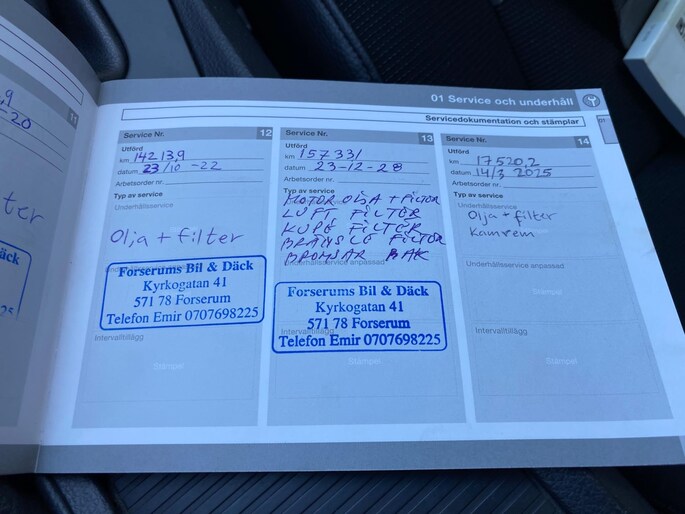 01 Service och underhåll
Servicedokumentation och stämplar
01
11
9
-20
ter
äck
25
Service Nr. 12
Utförd
km 14213,9
datum 23/10 -22
Arbetsorder nr.
Typ av service
Underhållsservice
Olja + filter
Forserums Bil & Däck
Kyrkogatan 41
571 78 Forserum
Telefon Emir 0707698225
Intervalltillägg
Stämpel
Service Nr. 13
Utförd
km 157331
datum 23-12-28
Arbetsorder nr.
Typ av service
MOTOR OLJA + FILTER
LUFT FILTER
KUPÉ FILTER
BRÄNSLE FILTER
BROMSAR BAK
Underhållsservice anpassad
Forserums Bil & Däck
Kyrkogatan 41
571 78 Forserum
Telefon Emir 0707698225
Intervalltillägg
Stämpel
Service Nr. 14
Utförd
km 17520,2
datum 14/3 2025
Arbetsorder nr.
Typ av service
Underhållsservice
Olja + filter
Kamrem
Underhållsservice anpassad
Stämpel
Intervalltillägg
Stämpel